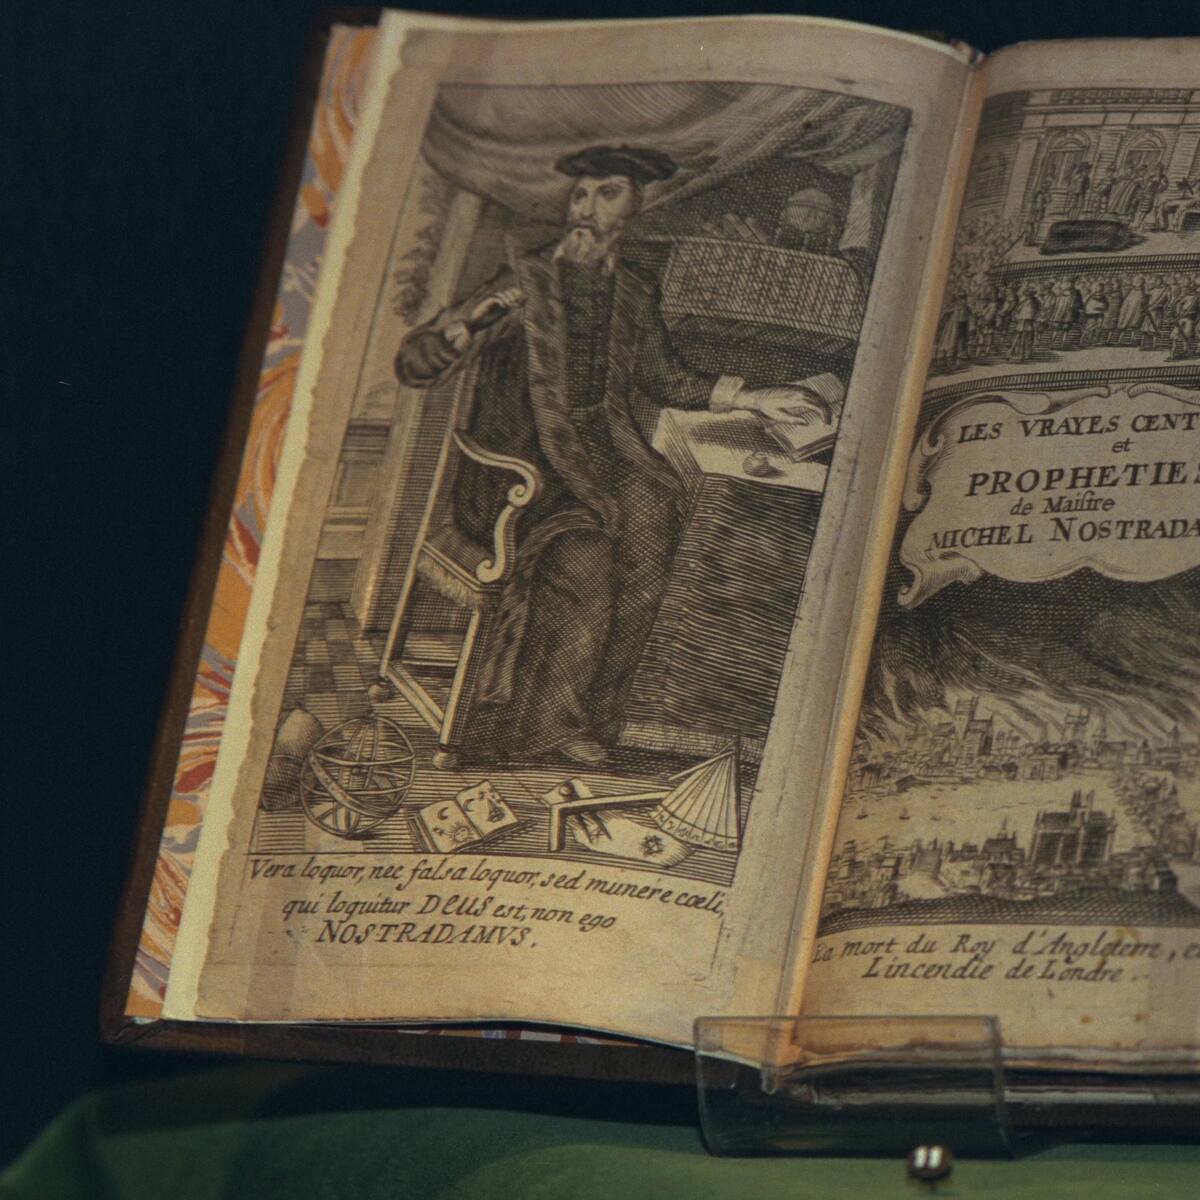 Vera loquor, nec falsa loquor, sed munere cœli,
qui loquitur DEUS est, non ego
NOSTRADAMVS.
LES VRAYES CENT
et
PROPHETIES
de Maiſtre
MICHEL NOSTRADA
La mort du Roy d'Angleterre, et
L'incendie de Londre..